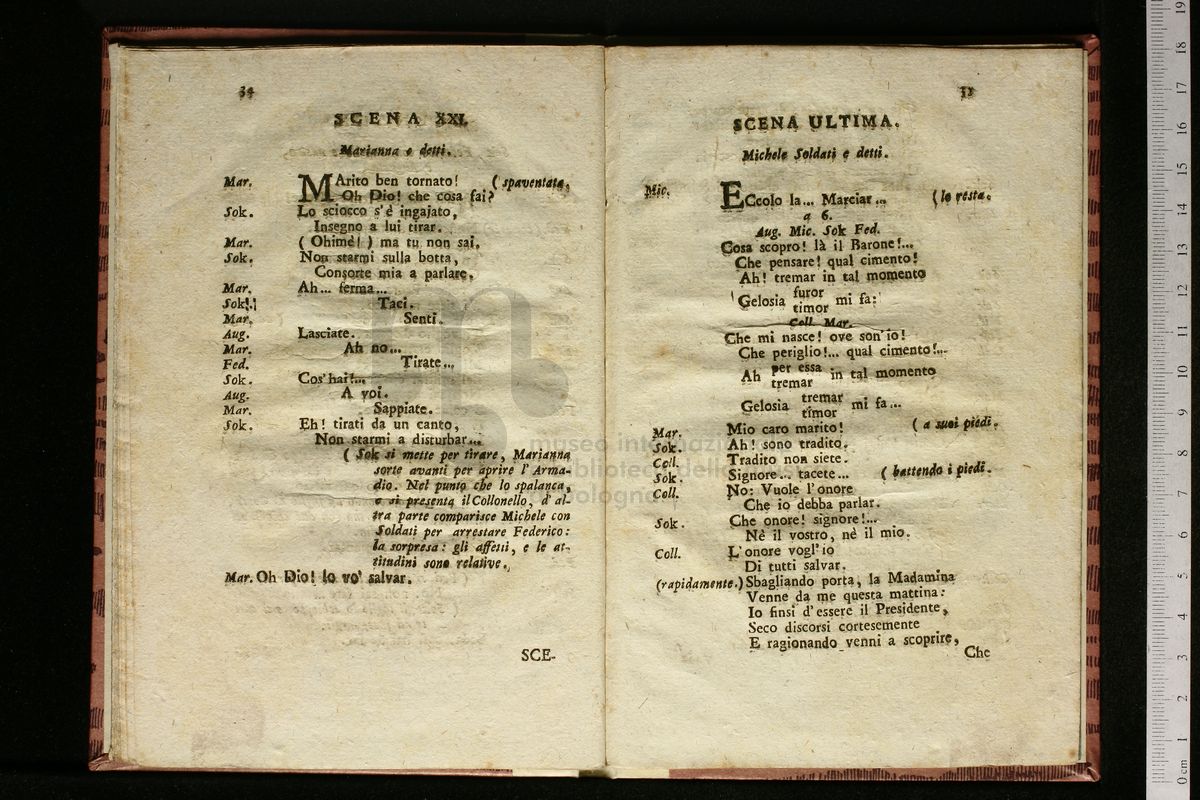 34
SCENA XXI.
Marianna e detti.
Mar. MArito ben tornato! ( spaventata.
Oh Dio! che cosa fai?
Sok. Lo sciocco s'è ingajato,
Insegno a lui tirar.
Mar. ( Ohimè! ) ma tu non sai.
Sok. Non starmi sulla botta,
Consorte mia a parlare.
Mar. Ah... ferma...
Sok. Taci.
Mar. Senti.
Aug. Lasciate.
Mar. Ah no...
Fed. Tirate...
Sok. Cos' hai!...
Aug. A voi.
Mar. Sappiate.
Sok. Eh! tirati da un canto,
Non starmi a disturbar...
( Sok si mette per tirare, Marianna
sorte avanti per aprire l' Arma-
dio. Nel punto che lo spalanca,
e si presenta il Collonello, d' al-
tra parte comparisce Michele con
Soldati per arrestare Federico:
la sorpresa: gli affetti, e le at-
titudini sono relative.
Mar. Oh Dio! lo vo' salvar.
SCE-
SCENA ULTIMA.
Michele Soldati e detti.
Mic. ECcolo la... Marciar... ( lo resta.
a 6.
Aug. Mic. Sok Fed.
Cosa scopro! là il Barone!...
Che pensare! qual cimento!
Ah! tremar in tal momento
furor
Gelosia mi fa:
timor
Coll. Mar.
Che mi nasce! ove son' io!
Che periglio!... qual cimento!...
per essa
Ah in tal momento
tremar
tremar
Gelosia mi fa...
timor
Mar. Mio caro marito! ( a suoi piedi.
Sok. Ah! sono tradito.
Coll. Tradito non siete.
Sok. Signore... tacete... ( battendo i piedi.
Coll. No: Vuole l'onore
Che io debba parlar.
Sok. Che onore! signore!...
Nè il vostro, nè il mio.
Coll. L'onore vogl' io
Di tutti salvar.
(rapidamente.) Sbagliando porta, la Madamina
Venne da me questa mattina:
Io finsi d'essere il Presidente,
Seco discorsi cortesemente
E ragionando venni a scoprire,
Che